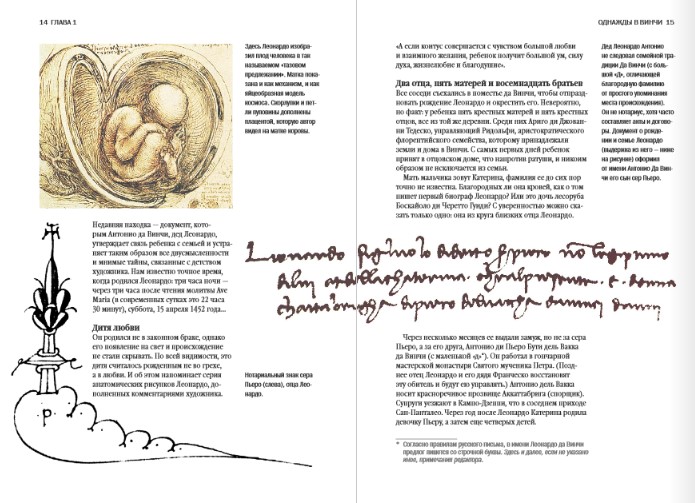 14 ГЛАВА 1
Здесь Леонардо изобра-
зил плод человека в так
называемом «тазовом
предлежании». Матка пока-
зана и как механизм, и как
яйцеобразная модель
космоса. Скорлупки и пет-
ли пуповины дополнены
плацентой, которую автор
видел на матке коровы.
Недавняя находка — документ, кото-
рым Антонио да Винчи, дед Леонардо,
утверждает связь ребенка с семьей и устра-
няет таким образом все двусмысленности
и мнимые тайны, связанные с детством
художника. Нам известно точное время,
когда родился Леонардо три часа ночи —
через три часа после чтения молитвы Ave
Maria (в современных сутках это 22 часа
30 минут), суббота, 15 апреля 1452 года...
Дитя любви
Он родился не в законном браке, однако
его появление на свет и происхождение
не стали скрывать. По всей видимости, это
дитя считалось рожденным не во грехе,
а в любви. И об этом напоминает серия
анатомических рисунков Леонардо, до-
полненных комментариями художника.
.p.
Нотариальный знак сера
Пьеро (слева), отца Лео-
нардо.
ОДНАЖДЫ В ВИНЧИ 15
«А если коитус совершается с чувством большой любви
и взаимного желания, ребенок получит большой ум, силу
духа, жизнелюбие и благодушие».
Два отца, пять матерей и восемнадцать братьев
Все соседи съехались в поместье да Винчи, чтобы отпразд-
новать рождение Леонардо и окрестить его. Невероятно,
но факт: у ребенка пять крестных матерей и пять крестных
отцов, все из той же деревни. Среди них Арриго ди Джован-
ни Тедеско, управляющий Ридольфи, аристократического
флорентийского семейства, которому принадлежали
земли и дома в Винчи. С самых первых дней ребенок
принят в отцовском доме, что напротив ратуши, и никоим
образом не исключается из семьи.
Мать мальчика зовут Катерина, фамилия ее до сих пор
точно не известна. Благородных ли она кровей, как о том
пишет первый биограф Леонардо? Или это дочь лесоруба
Боскайоло ди Черетто Гуиди? С уверенностью можно ска-
зать только одно: она из круга близких отца Леонардо.
Дед Леонардо Антонио
не следовал семейной тра-
диции Да Винчи (с боль-
шой «Д», отличающей
благородную фамилию
от простого упоминания
места происхождения).
Он не нотариус, хотя часто
составляет акты и догово-
ры. Документ о рожде-
нии и семье Леонардо
(выдержка из него — ниже
на рисунке) оформил
от имени Антонио Да Вин-
чи его сын сер Пьеро.
Lionardo
Через несколько месяцев ее выдали замуж, но не за сера
Пьеро, а за его друга, Антонио ди Пьеро Бути дель Вакка
да Винчи (с маленькой «д»*). Он работал в гончарной
мастерской монастыря Святого мученика Петра. (Позд-
нее отец Леонардо и его дядя Франческо восстановит
эту обитель и будут ею управлять.) Антонио дель Вакка
носит красноречивое прозвище Аккаттабрига (спорщик).
Супруги уезжают в Кампо-Дзеппи, что в соседнем приходе
Сан-Панталео. Через год после Леонардо Катерина родила
девочку Пьеру, а затем еще четверых детей.
* Согласно правилам русского письма, в имени Леонардо да Винчи
предлог пишется со строчной буквы. Здесь и далее, если не указано
иное, примечания редактора.